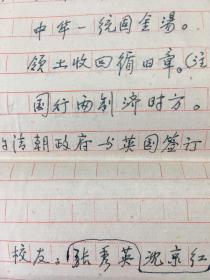 中华一统固金汤。
领土收回循旧章。(注
国行两制济时方。
清朝政府与英国签订
校友：张秀英 沈京红